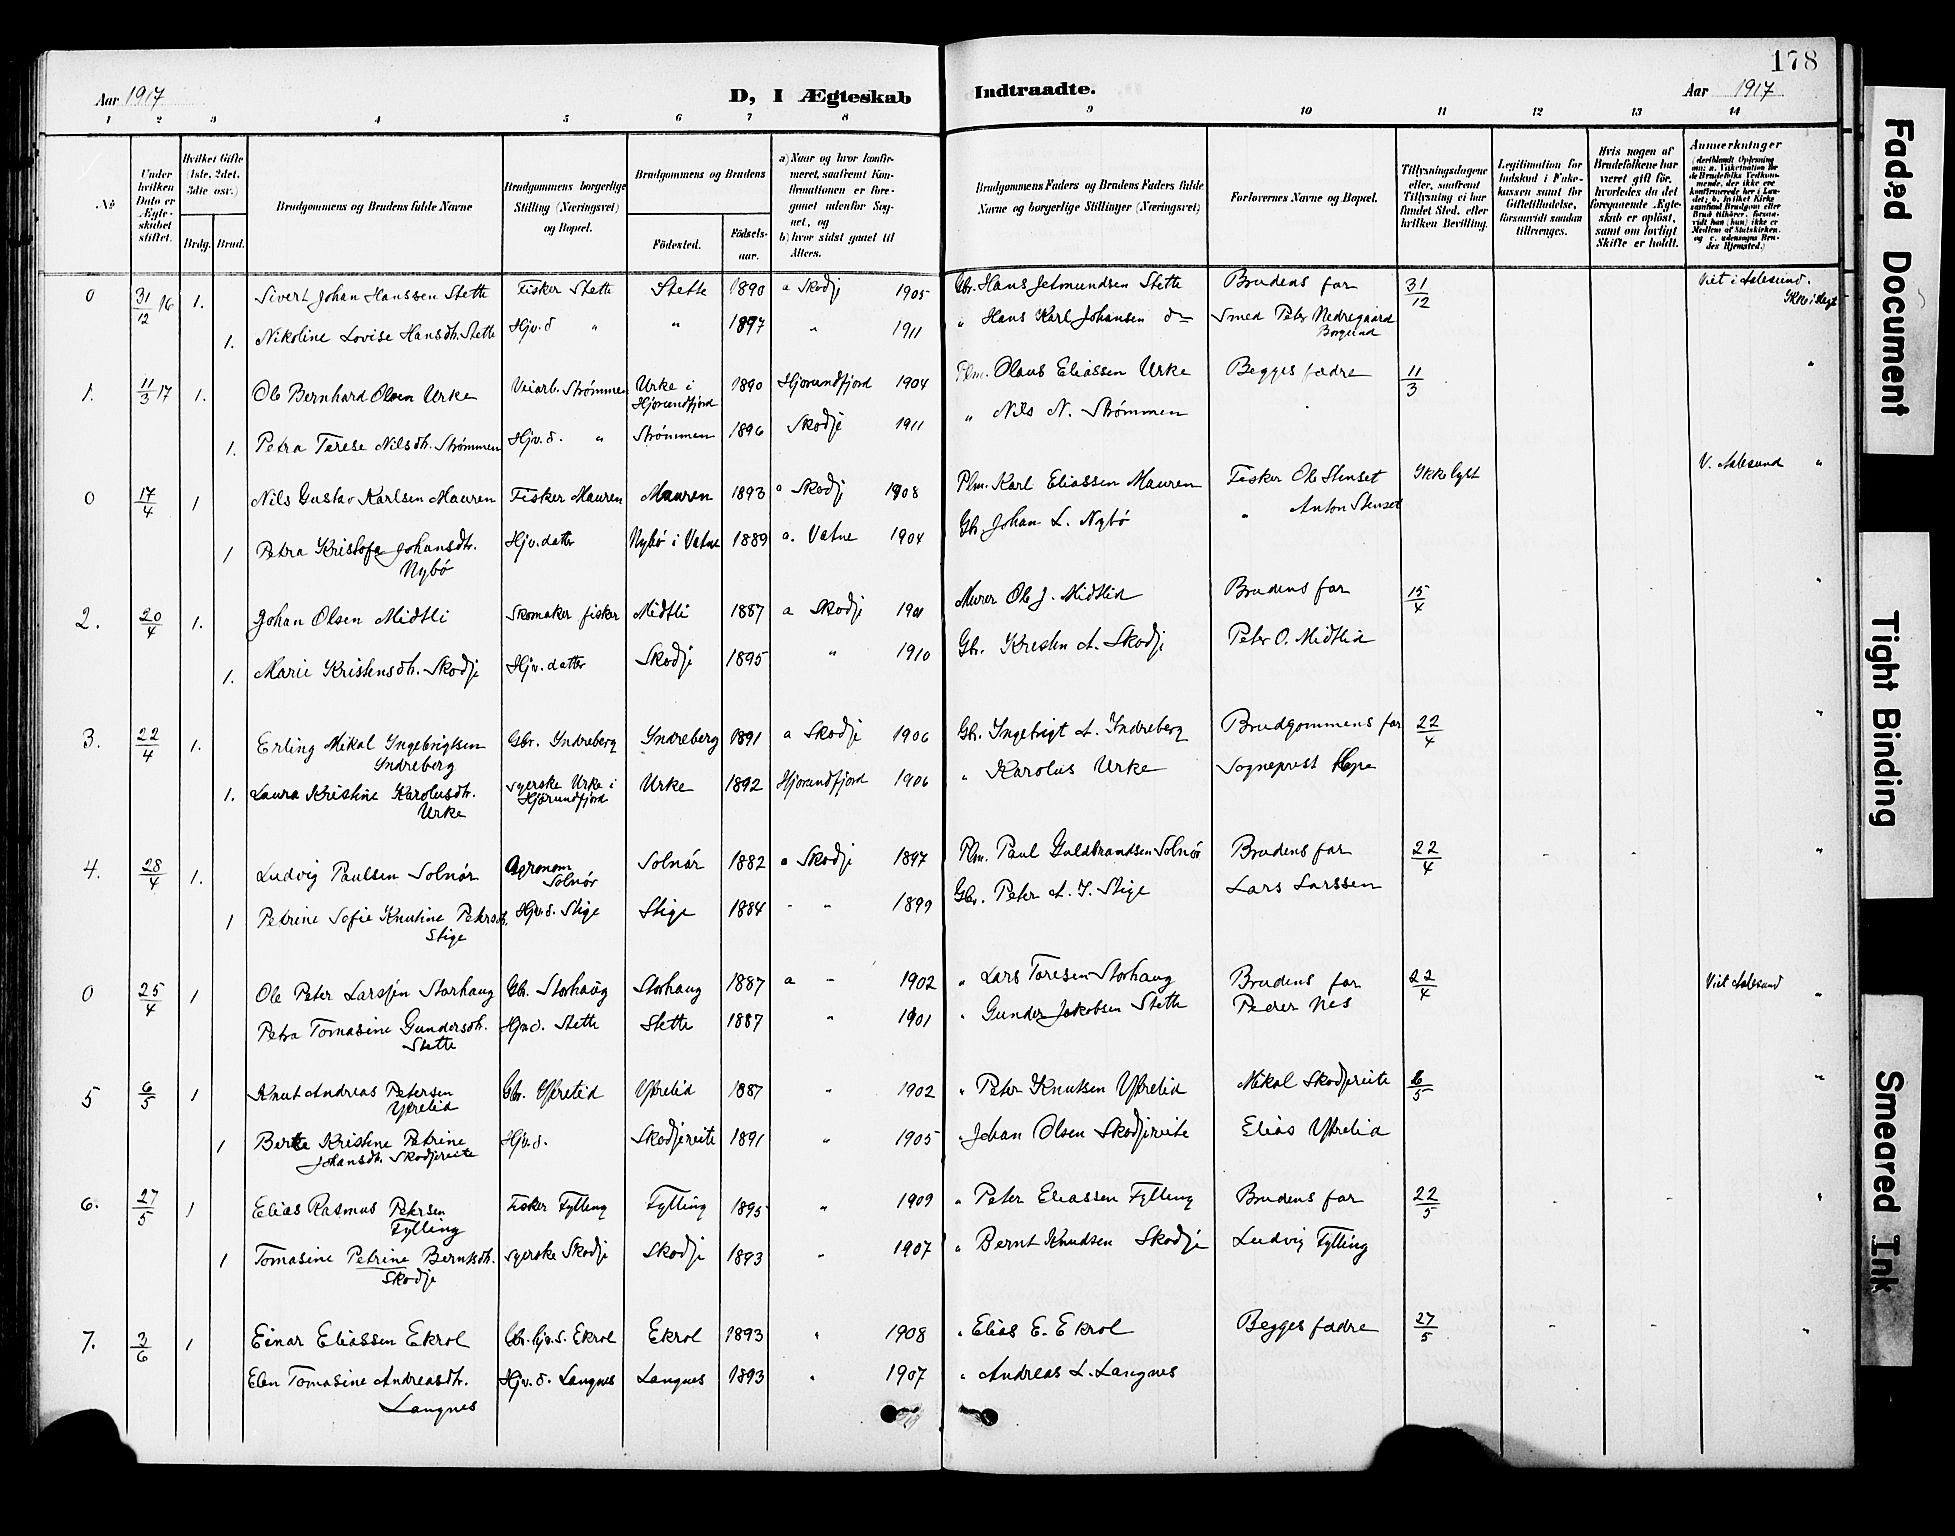 178
Aar 1917
D, I Ægteskab
Indtraadte.
Aar 1917
1 2 3 4 5 6 7 8 9 10 11 12 13 14
No
Under hvilken Dato er Ægteskabet stiftet.
Hvilket Gifte (1ste, 2det, 3die osv.)
Brdg. Brud.
Brudgommens og Brudens fulde Navne
Brudgommens borgerlige Stilling (Næringsvei) og Bopæl.
Brudgommens og Brudens
Fødested.
Fødselsaar.
a) Naar og hvor konfirmeret, saafremt Konfirmationen er foregaaet udenfor Sognet, og
b) hvor sidst gaaet til Alters.
Brudgommens Faders og Brudens Faders fulde Navne og borgerlige Stillinger (Næringsvei)
Forlovernes Navne og Bopæl.
Tillysningsdagene eller, saafremt Tillysning ei har fundet Sted, efter hvilken Bevilling.
Legitimation for Indskud i Enkekassen samt for Giftetilladelse, forsaavidt saadan tiltrænges.
Hvis nogen af Brudefolkene har været gift før, hvorledes da det foregaaende Ægteskab er opløst, samt om lovligt Skifte er holdt.
Anmerkninger
0 31/12 16 1. Sivert Johan Hanssen Stette Fisker Stette Stette 1890 a Skodje 1905 Gbr. Hans Jetmundsen Stette Brudens far 31/12 Viet i Aalesund.
Ikke i slegt
1. Nikoline Lovise Hansdtr. Stette Hjv. d " " 1897 " 1911 " Hans Karl Johansen do Smed Peter Nedregaard
Borgund
1. 11/3 17 1. Ole Bernhard Olsen Urke Veiarb. Strømmen Urke i Hjørundfjord 1890 Hjørundfjord 1904 Plm. Olaus Eliassen Urke Begges fædre 11/3 "
1. Petra Terese Nilsdtr. Strømmen Hjv. d. " Strømmen 1896 Skodje 1911 " Nils N. Strømmen
0 17/4 1 Nils Gustav Karlsen Mauren Fisker Mauren Mauren 1893 a Skodje 1908 Plm. Karl Eliassen Mauren Fisker Ole Stenset Ikke lyst V. Aalesund "
1 Petra Kristofa Johansdtr. Hjv. datter Nybø i Vatne 1889 a. Vatne 1904 Gbr Johan L. Nybø " Anton Stenset
Nybø
2. 20/4 1. Johan Olsen Midtli Skomaker fisker Midtli 1887 a Skodje 1901 Murer Ole J. Midtlid Brudens far 15/4 "
1. Marie Kristensdtr. Skodje Hjv. datter Skodje 1895 " 1910 Gbr. Kristen A. Skodje Peter O. Midtlid
3. 22/4 1. Erling Mikal Ingebrigtsen Gbr. Indreberg Indreberg 1891 a Skodje 1906 Gbr. Ingebrigt A. Indreberg Brudgommens far 22/4 "
Indreberg
1. Laura Kristine Karolusdtr. syerske Urke i Hjørundfjord Urke 1892 Hjørundfjord 1906 " Karolus Urke Sogneprest Hope
Urke
4. 28/4 1. Ludvig Paulsen Solnør Agronom Solnør Solnør 1882 a Skodje 1897 Plm. Paul Guldbrandsen Solnør Brudens far 22/4 - - "
1 Petrine Sofie Knutine Petersdtr. Hjv. d. Stige Stige 1884 - " 1899 Gbr. Peter A. I. Stige Lars Larssen
Stige
0 25/4 1 Ole Peter Larssen Storhaug Gbr. Storhaug Storhaug 1887 a - 1902 " Lars Toresen Storhaug Brudens far 22/4 Viet Aalesund "
Petra Tomasine Gundersdtr. Hjv d. Stette Stette 1887 " 1901 " Gunder Jakobsen Stette Peder Nes
Stette
5 6/5 1 Knut Andreas Petersen Gbr. Ytrelid Ytrelid 1887 " 1902 " Peter Knutsen Ytrelid Mikal Skodjereite 6/5 "
Ytrelid
1 Berte Kristine Petrine Hjv. d. Skodjereite 1891 " 1905 " Johan Olsen Skodjereite Elias Ytrelid
Johansdtr. Skodjereite
6. 27/5 1 Elias Rasmus Petersen Fisker Fylling Fylling 1895 " 1909 " Peter Eliassen Fylling Brudens far 22/5 "
Fylling
1 Tomasine Petrine Berntsdtr. syerske Skodje Skodje 1893 " 1907 " Bernt Knudsen Skodje Ludvig Fylling
Skodje
7. 3/6 1 Einar Eliassen Ekrol Ekrol Ekrol 1893 " 1908 " Elias E. Ekrol Begges fædre 27/5 - - "
Elen Tomasine Andreasdtr. Hjv. d. Langnes Langnes 1893 " 1907 " Andreas L. Langnes
Langnes
Faded Document
Tight Binding
Smeared Ink